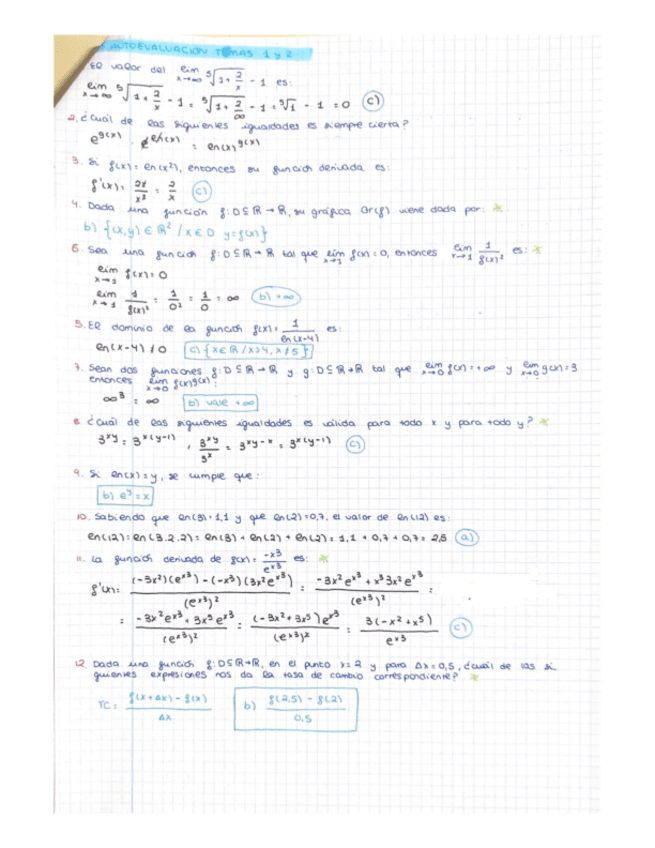 AUTOEVALUACIÓN TEMAS 1 y 2
El valor del lim x→∞ ⁵√(1+2/x) - 1 es:
lim x→∞ ⁵√(1+2/x) - 1 = ⁵√(1+2/∞) - 1 = ⁵√1 - 1 = 0 c)
2. ¿Cuál de las siguientes igualdades es siempre cierta?
= ln(x)^g(x)
3. Si f(x) = ln(x²), entonces su función derivada es:
f'(x) = 2x/x² = 2/x c)
4. Dada una función f: D⊆ℝ→ℝ, su gráfica Gr(f) viene dada por: *
b) {(x,y) ∈ ℝ² / x ∈ D y=f(x)}
6. Sea una función f: D⊆ℝ→ℝ tal que lim x→1 f(x) = 0, entonces lim x→1 1/f(x)² es: *
lim x→1 f(x) = 0
lim x→1 1/f(x)² = 1/0² = 1/0 = ∞ b) +∞
5. El dominio de la función f(x) = 1/ln(x-4) es:
ln(x-4) ≠ 0 c) {x∈ℝ / x>4, x≠5}
7. Sean dos funciones f: D⊆ℝ→ℝ y g: D⊆ℝ→ℝ tal que lim x→0 f(x) = +∞ y lim x→0 g(x) = 3
entonces lim x→0 f(x)^g(x):
∞³ = ∞ b) vale +∞
8. ¿Cuál de las siguientes igualdades es válida para todo x y para todo y? *
3^xy = 3^x(y-1) , 3^xy/3^x = 3^xy-x = 3^x(y-1) c)
9. Si ln(x) = y, se cumple que:
b) e^y = x
10. Sabiendo que ln(3) = 1,1 y que ln(2) = 0,7, el valor de ln(12) es:
ln(12) = ln(3·2·2) = ln(3) + ln(2) + ln(2) = 1,1 + 0,7 + 0,7 = 2,5 a)
11. La función derivada de f(x) = -x³/e^x³ es: *
f'(x) = (-3x²)(e^x³) - (-x³)(3x²e^x³)/(e^x³)² = -3x²e^x³ + x³3x²e^x³/(e^x³)² =
= -3x²e^x³ + 3x⁵e^x³/(e^x³)² = (-3x² + 3x⁵)e^x³/(e^x³)² = 3(-x² + x⁵)/e^x³ c)
12. Dada una función f: D⊆ℝ→ℝ, en el punto x=2 y para Δx=0,5, ¿cuál de las si
guientes expresiones nos da la tasa de cambio correspondiente? *
TC = f(x+Δx) - f(x)/Δx b) f(2,5) - f(2)/0,5